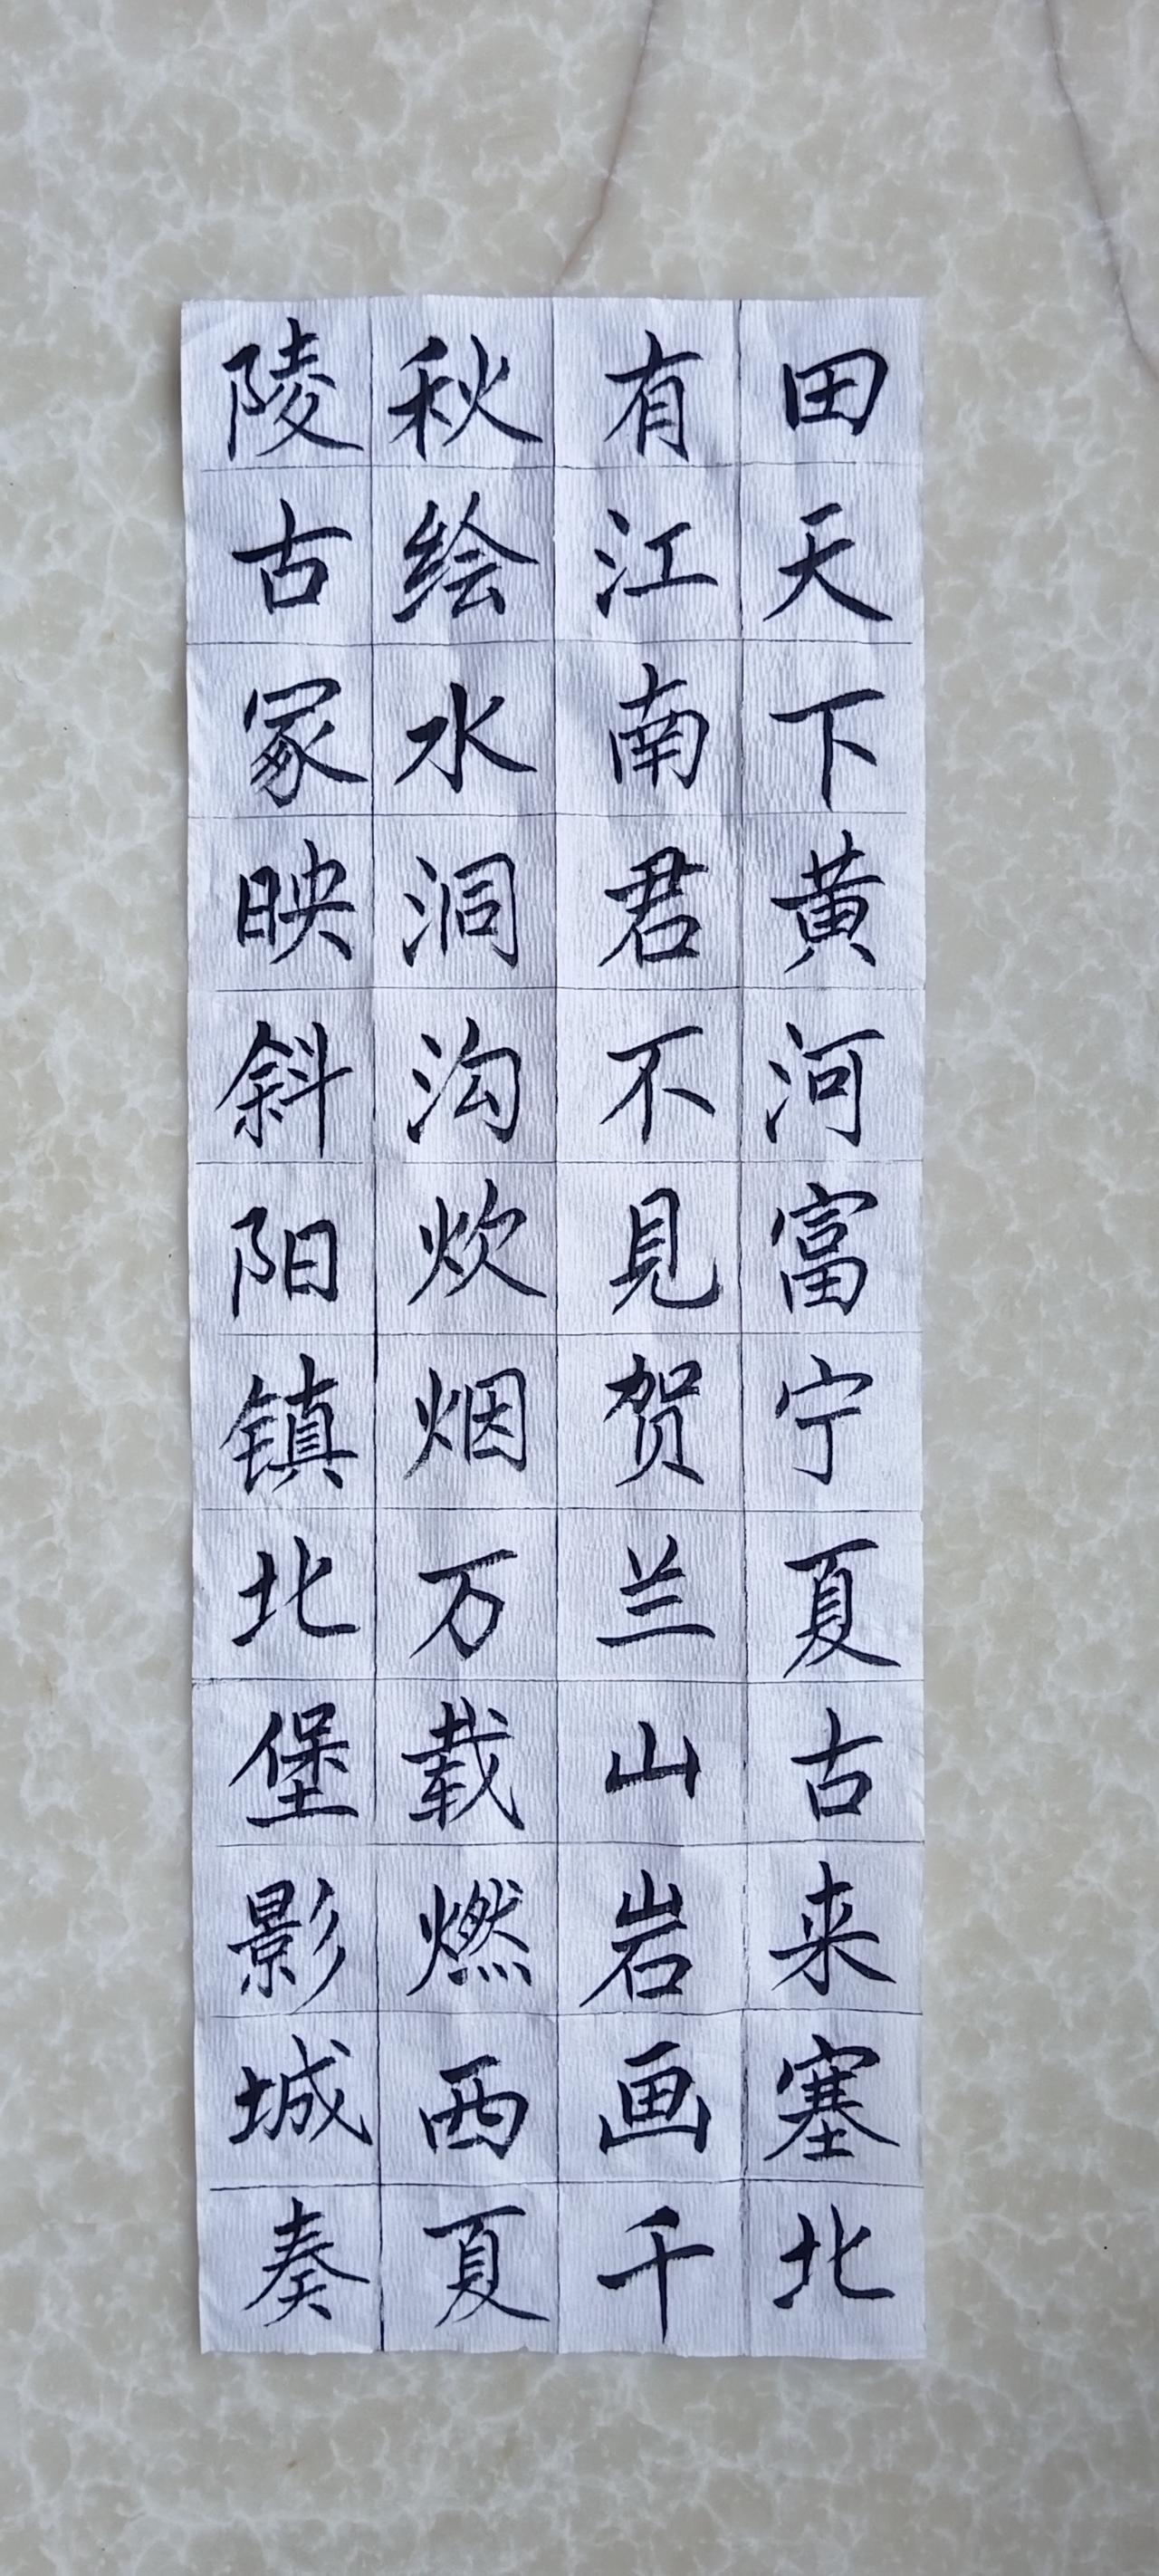 田天下黄河富宁夏古来塞北
有江南君不見贺兰山岩画千
秋绘水洞沟炊烟万载燃西夏
陵古冢映斜阳镇北堡影城奏